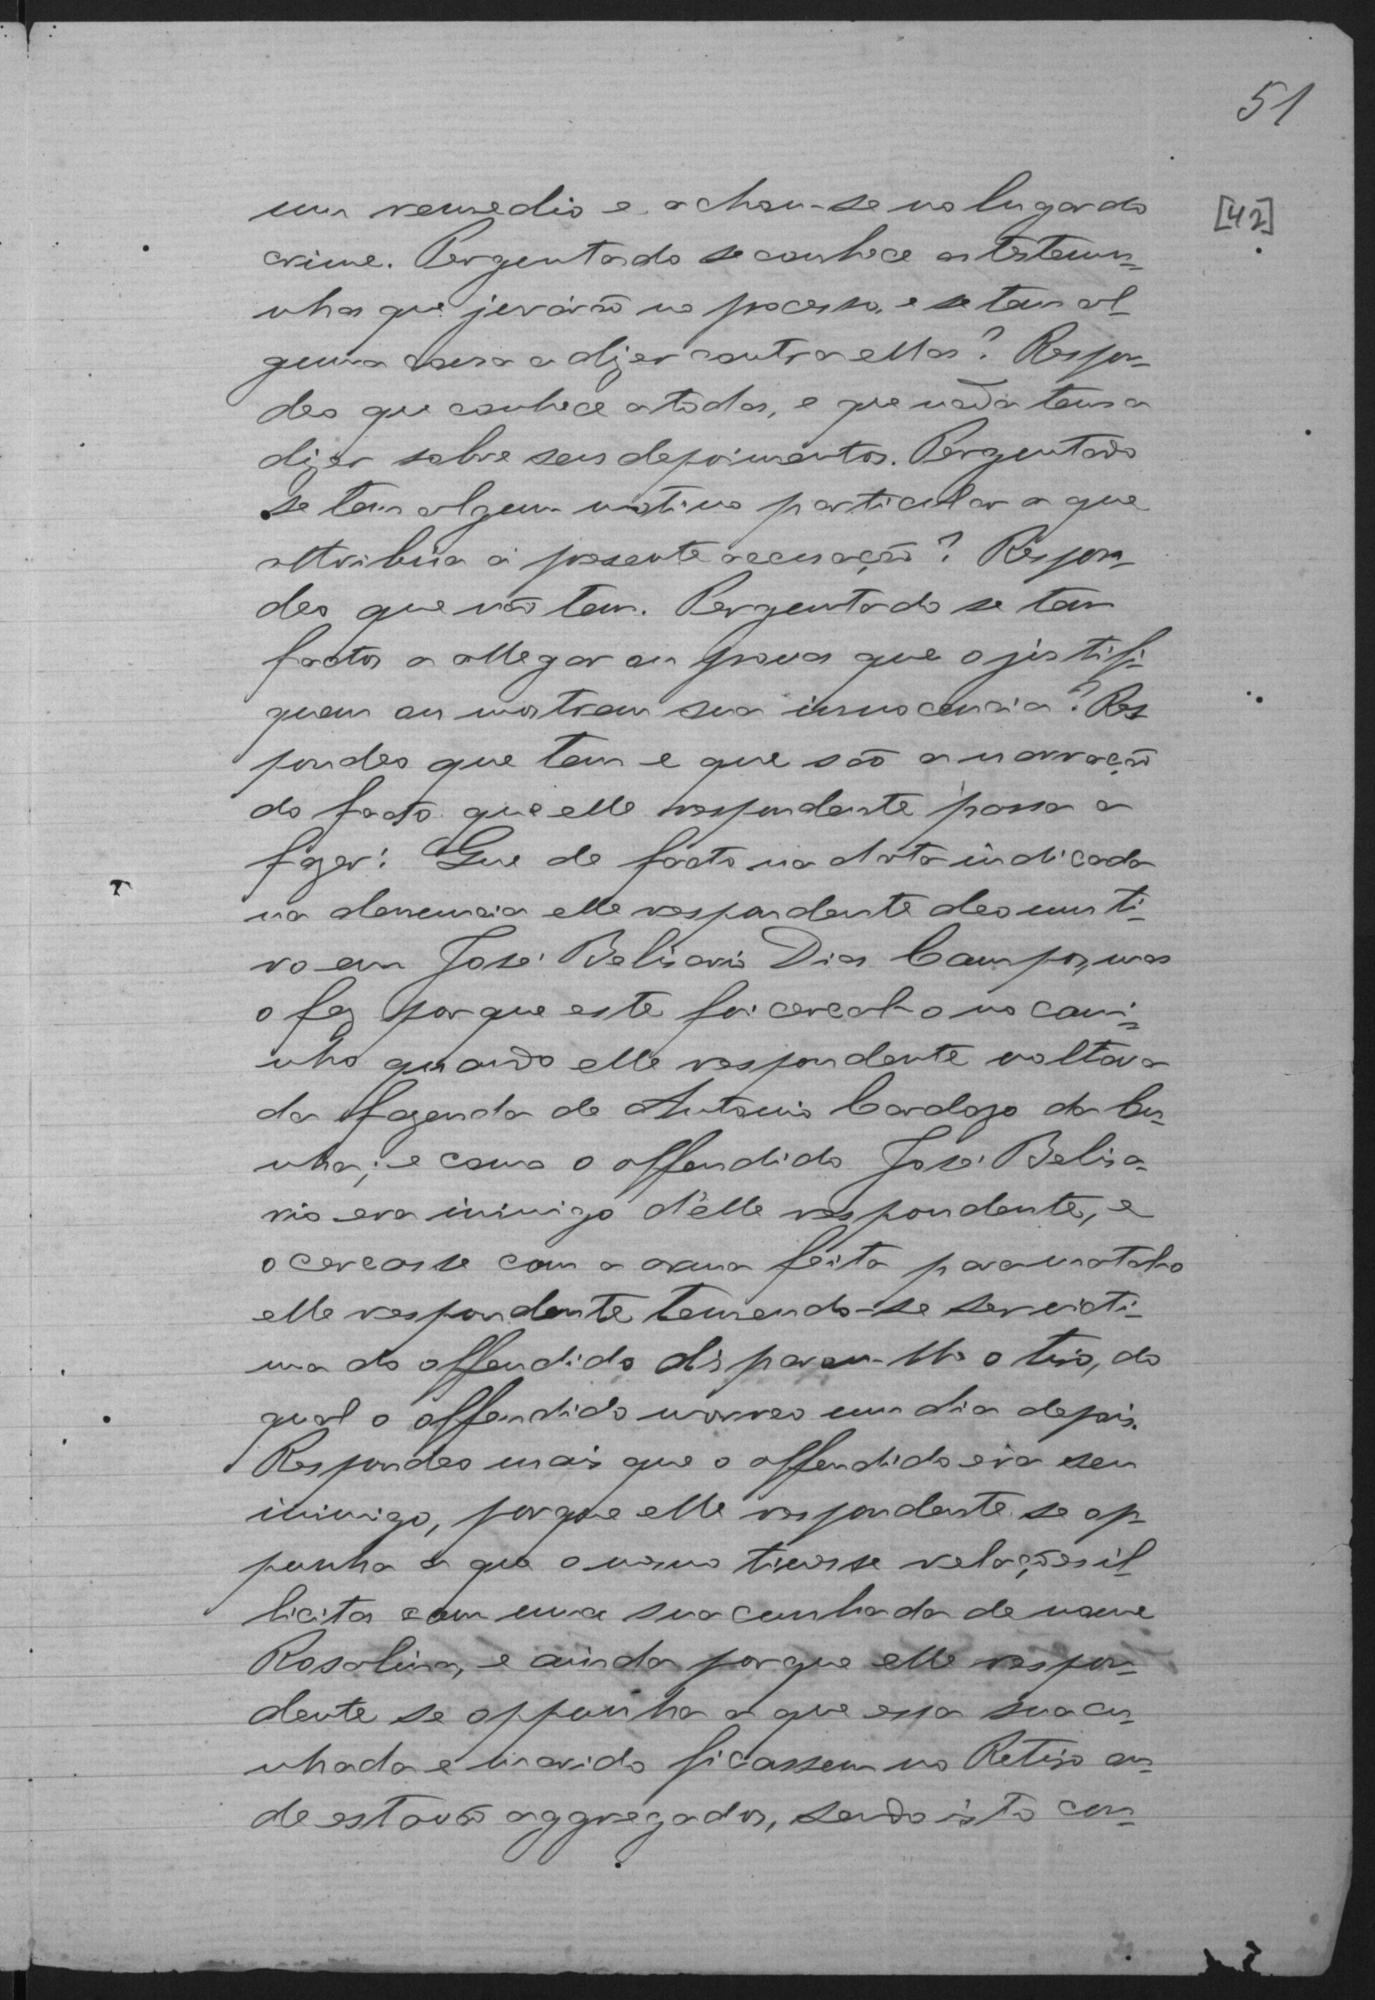 51
[42]
um remedio e achou-se no lugar do
crime. Perguntado se conhece as testemu-
nhas que jurárão no processo, e se tem al-
guma cousa a dizer contra ellas? Respon-
deo que conhece a todas, e que nada tem a
dizer sobre seus depoimentos. Perguntado
se tem algum motivo particular a que
attribua a presente accusação? Respon-
deo que não tem. Perguntado se tem
factos a allegar ou provas que o justifi-
quem ou mostrem sua innocencia? Res
pondeo que tem e que são a narração
do facto que elle respondente passa a
fazer: Que de facto na data indicada
na denuncia elle respondente deo um ti-
ro em José Belisario Dias Campos, mas
o fez porque este foi cercal-o no cami-
nho quando elle respondente voltava
da fazenda de Antonio Cardozo da Cu-
nha; e como o offendido José Belisa-
rio era inimigo d'elle respondente, e
o cercasse com a arma feita para matal-o
elle respondente temendo-se ser victi-
ma do offendido disparou-lhe o tiro, do
qual o offendido morreo um dia depois.
Respondeo mais que o offendido era seu
inimigo, porque elle respondente se op-
punha a que o mesmo tivesse relações il-
licitas com uma sua cunhada de nome
Rosalina, e ainda porque elle respon-
dente se oppunha a que essa sua cu-
nhada e marido ficassem no Retiro on-
de estavão aggregados, sendo isto con-